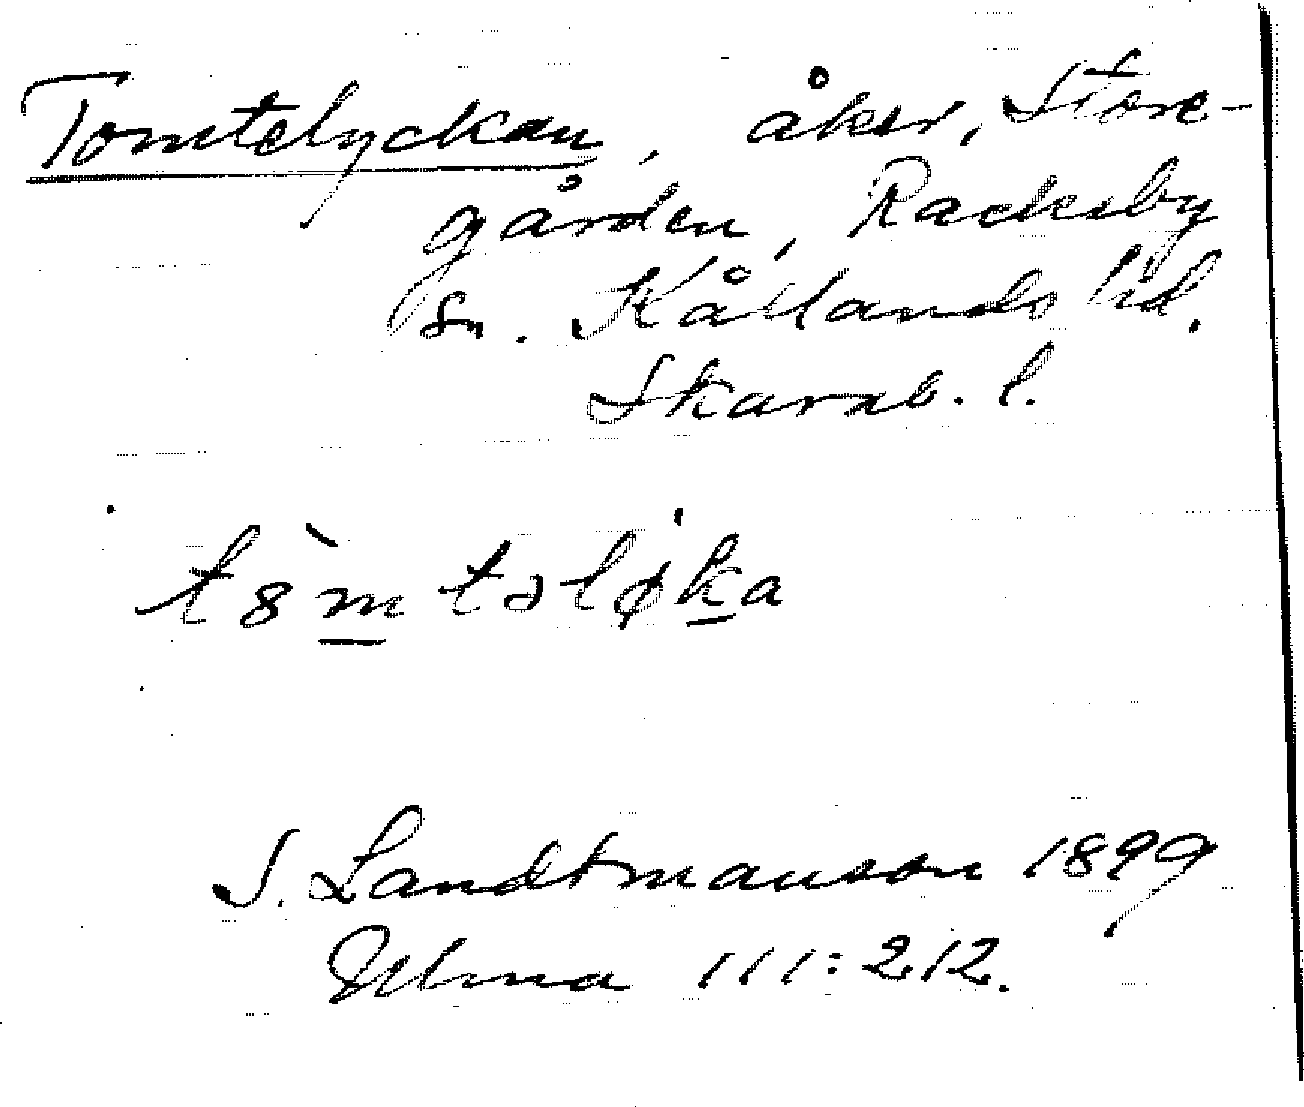 Tomtelyckan, åker, Store-
gården, Rackeby
sn. Kållands hd.
Skarab. l.
tò̀mtəløka
S. Landtmanson 1899
Ulma 111:212.